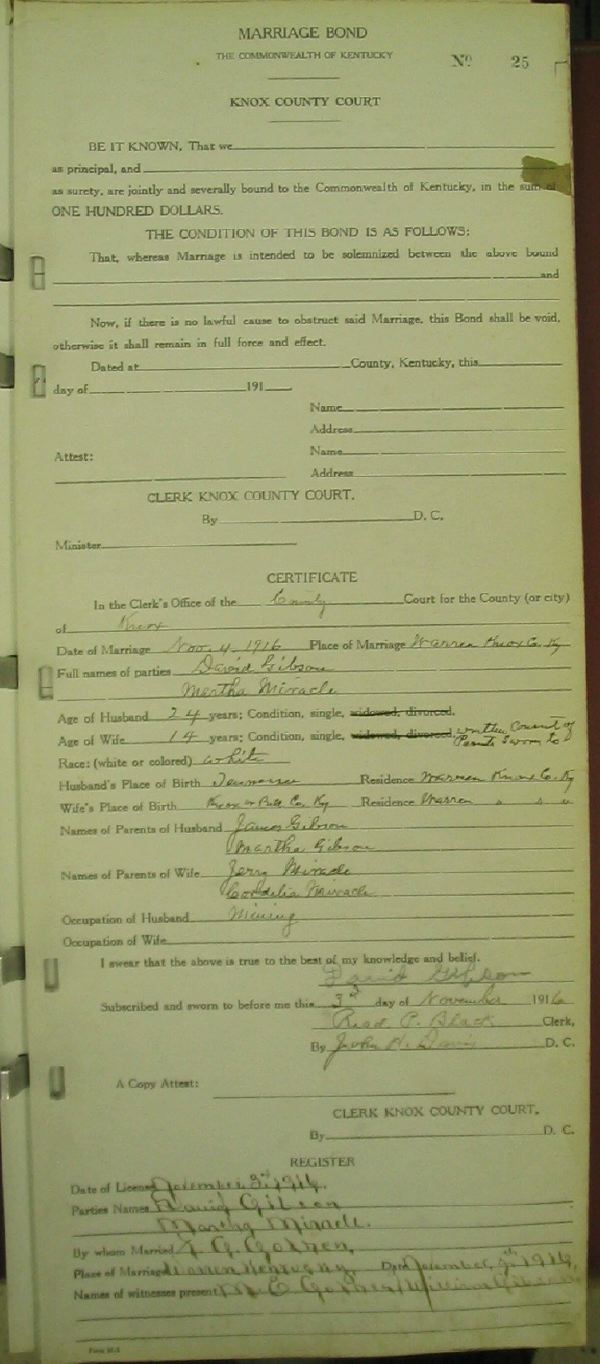 MARRIAGE BOND
THE COMMONWEALTH OF KENTUCKY
No. 25
KNOX COUNTY COURT
BE IT KNOWN, That we
as principal, and
as surety, are jointly and severally bound to the Commonwealth of Kentucky, in the sum of
ONE HUNDRED DOLLARS.
THE CONDITION OF THIS BOND IS AS FOLLOWS:
That, whereas Marriage is intended to be solemnized between the above bound
and
Now, if there is no lawful cause to obstruct said Marriage, this Bond shall be void,
otherwise it shall remain in full force and effect.
Dated at County, Kentucky, this
day of 191
Name
Address
Attest: Name
Address
CLERK KNOX COUNTY COURT.
By D. C.
Minister
CERTIFICATE
In the Clerk's Office of the County Court for the County (or city)
of Knox
Date of Marriage Nov. 4 1916 Place of Marriage Warren Knox Co. Ky
Full names of parties David Gibson
Martha Miracle
Age of Husband 24 years; Condition, single, widowed, divorced.
Age of Wife 14 years; Condition, single, widowed, divorced, written Consent of
Parents Sworn to
Race: (white or colored) white
Husband's Place of Birth Tennessee Residence Warren Knox Co. Ky
Wife's Place of Birth Knox or Bell Co. Ky Residence Warren " " "
Names of Parents of Husband James Gibson
Martha Gibson
Names of Parents of Wife Jerry Miracle
Cordelia Miracle
Occupation of Husband Mining
Occupation of Wife
I swear that the above is true to the best of my knowledge and belief.
David Gibson
Subscribed and sworn to before me this 3rd day of November 1916
Read P. Black Clerk,
By John H. Davis D. C.
A Copy Attest:
CLERK KNOX COUNTY COURT.
By D. C.
REGISTER
Date of License November 3rd, 1916.
Parties Names David Gibson
Martha Miracle.
By whom Married
Place of Marriage Warren Kentucky, Date November, 1916,
Names of witnesses present William